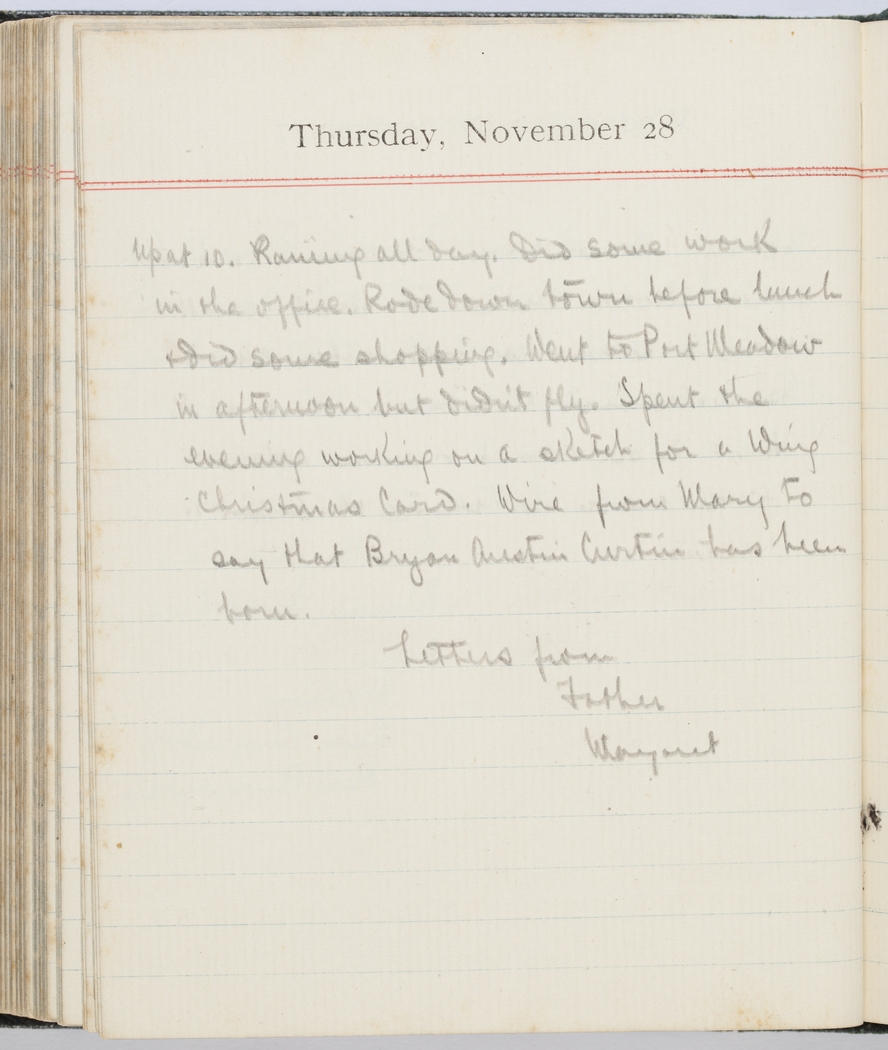 Thursday, November 28
Up at 10. Raining all day. Did some work
in the office. Rode down town before lunch
& did some shopping. Went to Port Meadow
in afternoon but didn't fly. Spent the
evening working on a sketch for a Wing
Christmas Card. Wire from Mary to
say that Bryan Austin Curtin has been
born.
Letters from
Father
Margaret